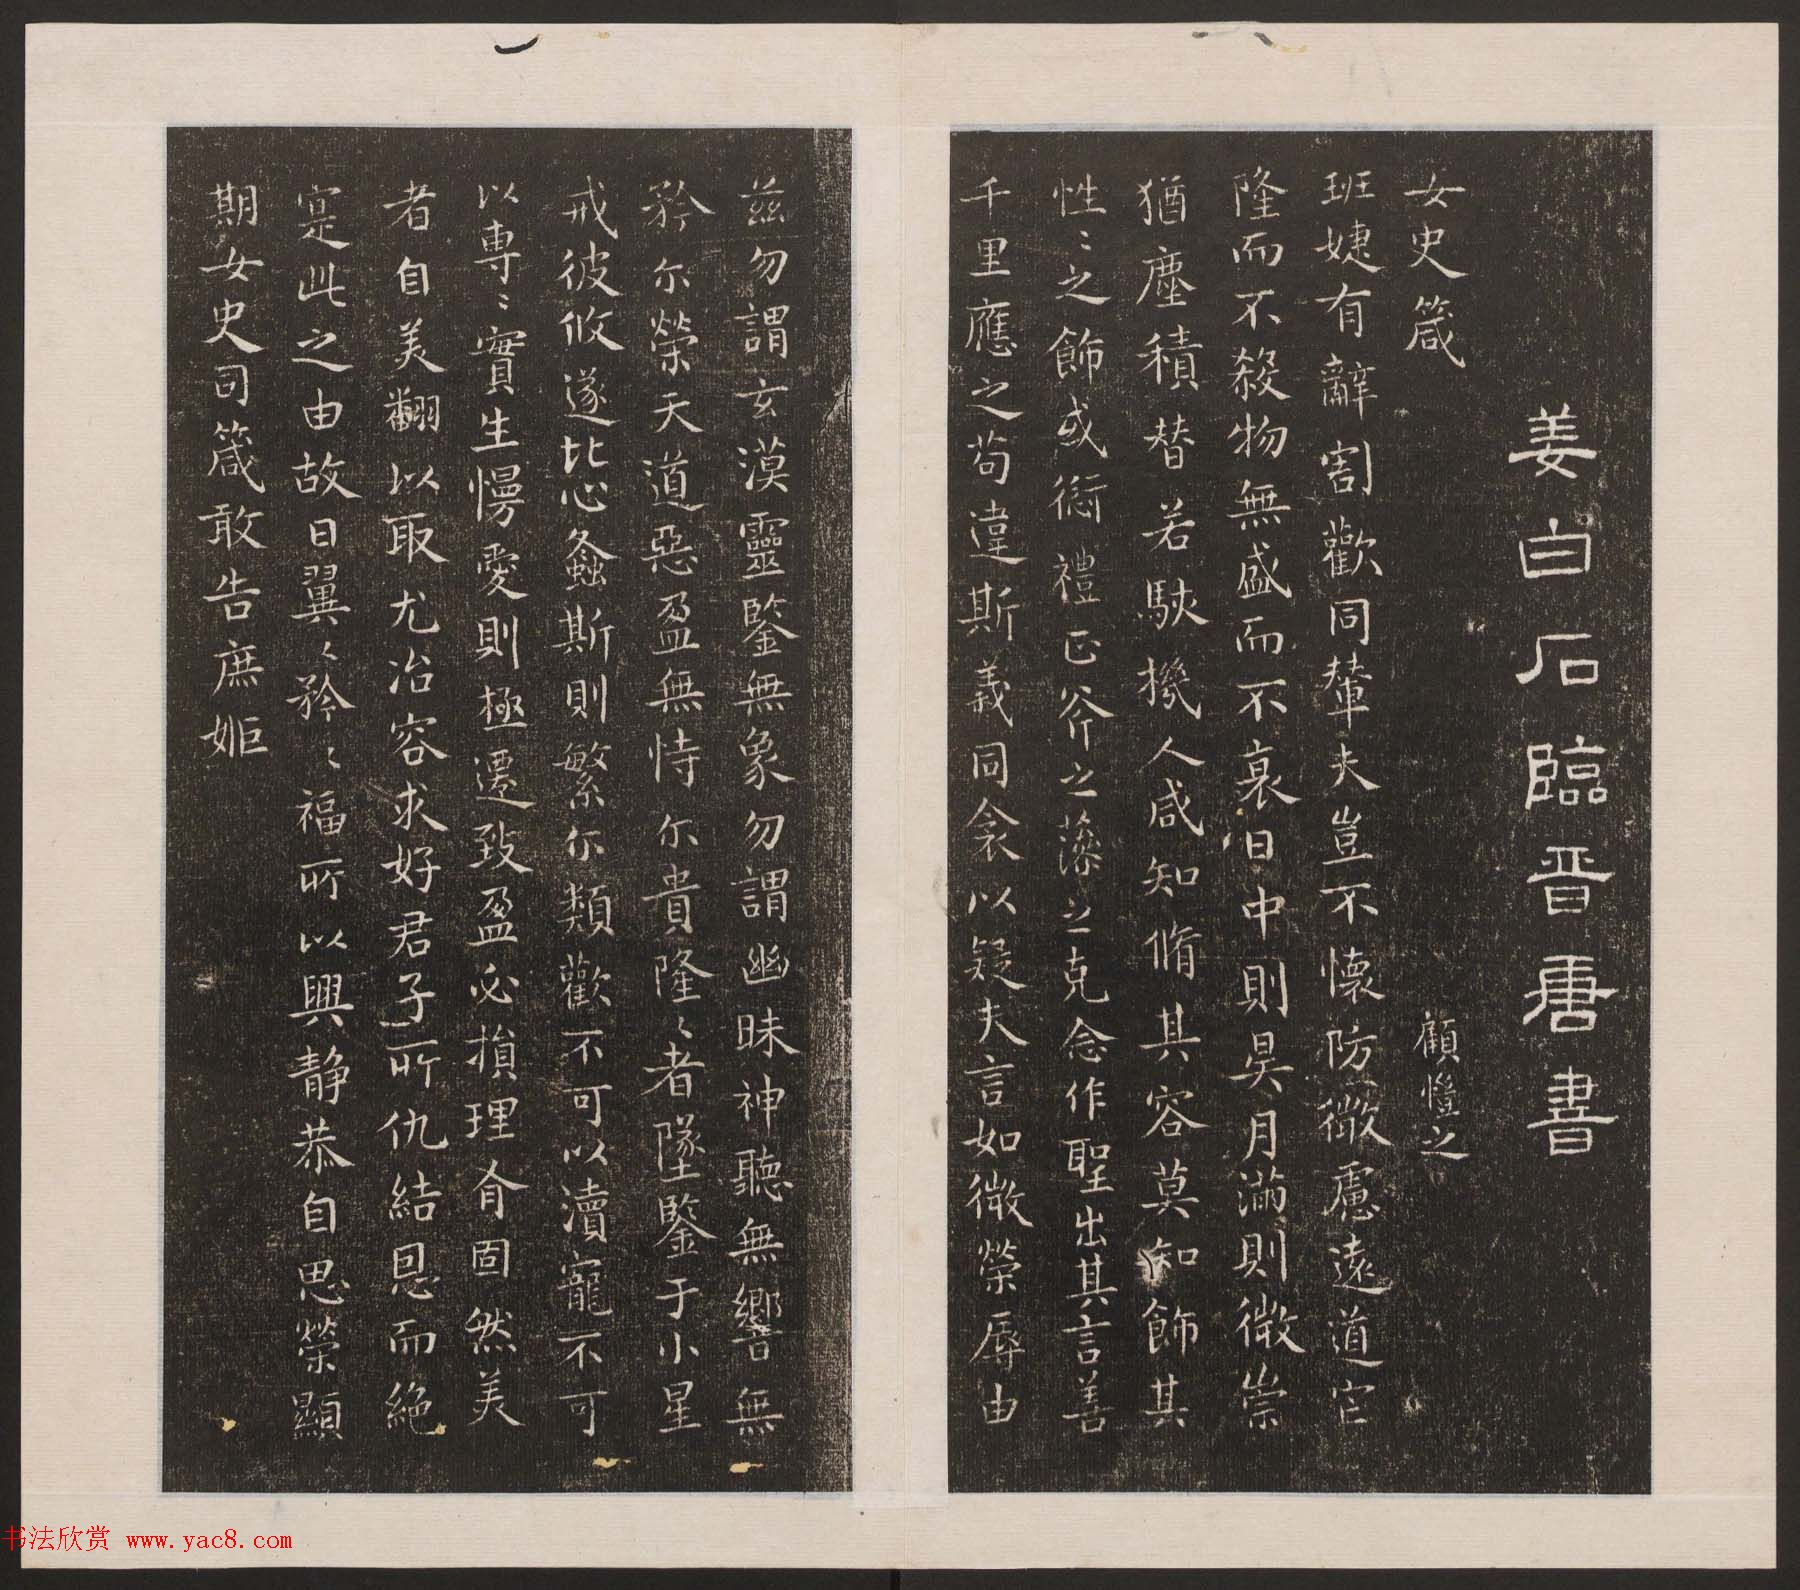 姜白石臨晉唐書
女史箴
顧愷之
班婕有辭割歡同輦夫豈不懷防微慮遠道它
隆而不殺物無盛而不衰日中則昃月滿則微崇
猶塵積替若駃機人咸知脩其容莫知飾其
性〻之飾或愆禮正斧之藻之克念作聖出其言善
千里應之苟違斯義同衾以疑夫言如微榮辱由
茲勿謂玄漠靈鑒無象勿謂幽昧神聽無響無
矜尒榮天道惡盈無恃尒貴隆〻者墜鑒于小星
戒彼攸遂比心螽斯則繁尒類歡不可以瀆寵不可
以專〻實生慢愛則極遷致盈必損理有固然美
者自美翻以取尤冶容求好君子所仇結恩而絕
寔此之由故曰翼〻矜〻福所以興靜恭自思榮顯
期女史司箴敢告庶姬
书法欣赏 www.yac8.com